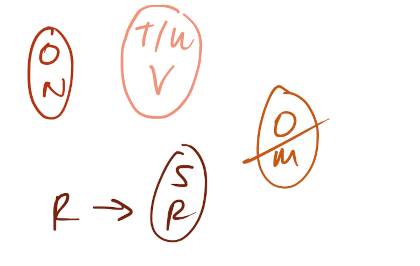 O
N
T/U
V
O
M
R → S
R